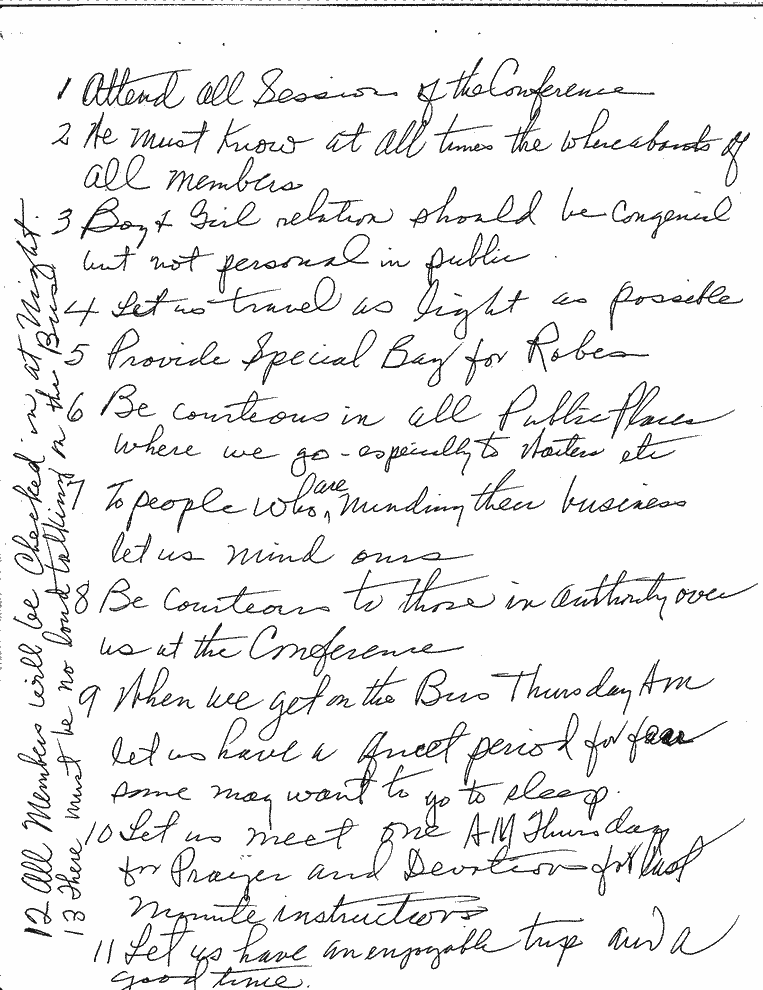 1 Attend all Sessions of the Conference
2 We must Know at all times the whereabouts of
all members
3 Boy & Girl relation should be Congenial
but not personal in public
4 Let us travel as light as possible
5 Provide Special Bag for Robes
6 Be courteous in all Public Places
where we go - especially to Waiters etc
7 To people who are minding their business
let us mind ours
8 Be Courteous to those in authority over
us at the Conference
9 When we get on the Bus Thursday Am
let us have a Quiet period for
some may want to go to sleep.
10 Let us meet one AM Thursday
for Prayer and Devotion for last
Minute instructions
11 Let us have an enjoyable trip and a
good time.
12 All Members will be Checked in at Night.
13 There must be no loud talking on the Buses